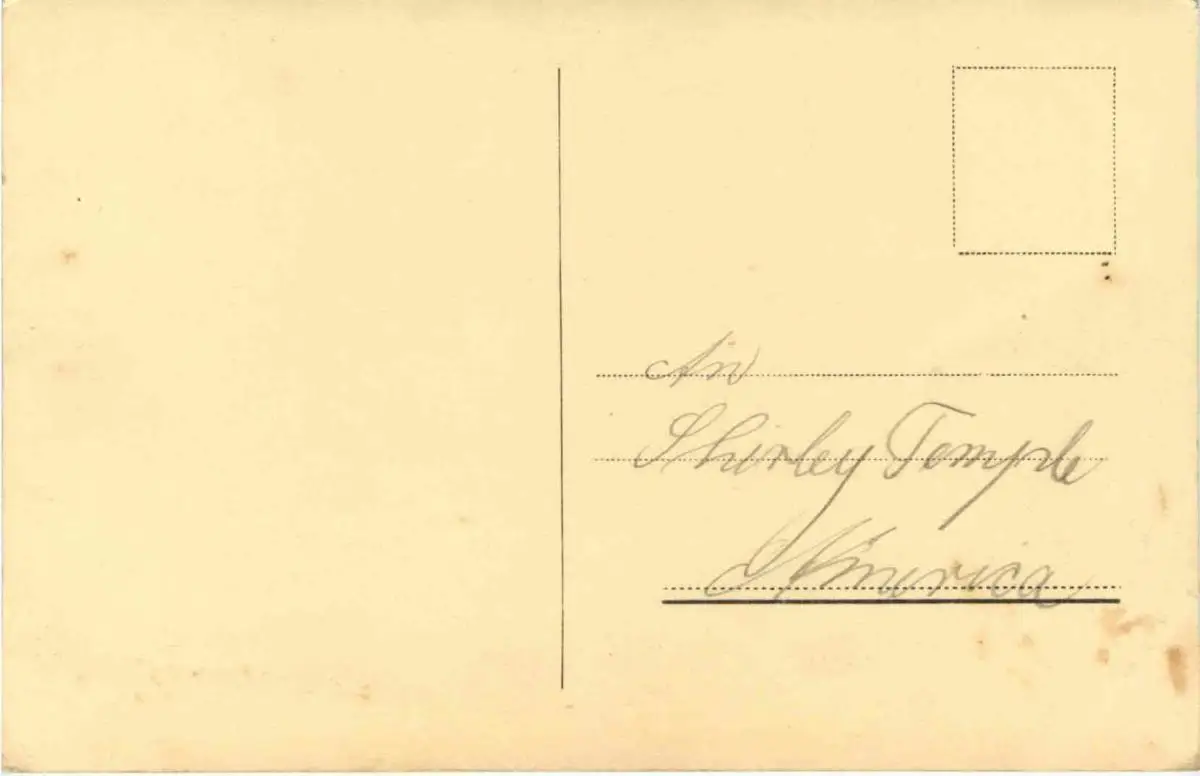 An
Shirley Temple
America